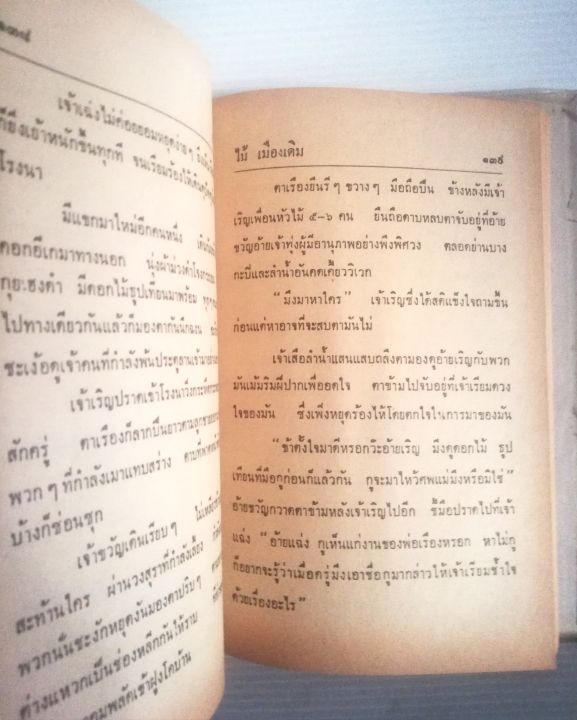 ๑๓๘
เจ้าเฉ่งไม่ค่อยยอมหยุดง่ายๆ
ก็ยิ่งเย้าหนักขึ้นทุกที จนเรียมร้องไห้
โรงนา
มีแขกมาใหม่อีกคนหนึ่ง
ดอกอีเกมาทางนอก นุ่งผ้าม่วงดำโจง
กุยเฮงดำ มีดอกไม้ธูปเทียนมาพร้อม
ไปทางเดียวกันแล้วก็มองตากันนึกฉงน
ชะเง้อดูเจ้าคนที่กำลังพ้นประตูลานเข้ามา
เจ้าเริญปราดเข้าโรงนาวิ่งกระหืด
สักครู่ ตาเรืองก็ลากปืนยาวตามลูกชาย
พวกๆที่กำลังเมาแทบสร่าง ตาบที่พาด
บ้างก็ซ่อนซุก
เจ้าขวัญเดินเรียบๆ ไม่เหลือบ
สะท้านใคร ผ่านวงสุราที่กำลังเลี้ยง
พวกนั้นชะงักหยุดงันมองตาปริบๆ
ต่างแหวกเป็นช่องหลีกกันให้ราบ
พลัดเข้าฝูงโคบ้าน
ไม้ เมืองเดิม ๑๓๙
ตาเรืองยืนรีๆ ขวางๆ มือถือปืน ข้างหลังมีเจ้า
เริญเพื่อนหัวไม้ ๕-๖ คน ยืนถือดาบหลบตาจับอยู่ที่อ้าย
ขวัญอ้ายเจ้าทุ่งผู้มีอานุภาพอย่างพึงพิศวง ตลอดย่านบาง
กะปิและลำน้ำอันคดเคี้ยววิเวก
"มึงมาหาใคร" เจ้าเริญซึ่งได้สติแข็งใจถามขึ้น
ก่อนแต่หาอาจที่จะสบตามันไม่
เจ้าเสือลำน้ำแสนแสบถลึงตามองดูอ้ายเริญกับพวก
มันเม้มริมฝีปากเพื่ออดใจ ตาข้ามไปจับอยู่ที่เจ้าเรียมดวง
ใจของมัน ซึ่งเพิ่งหยุดร้องไห้โดยตกใจในการมาของมัน
"ข้าตั้งใจมาดีหรอกวะอ้ายเริญ มึงดูดอกไม้ ธูป
เทียนที่มือกูก่อนก็แล้วกัน กูจะมาไหว้ศพแม่มึงหรือมิใช่"
อ้ายขวัญกวาดตาข้ามหลังเจ้าเริญไปอีก ชี้มือปราดไปที่เจ้า
แฉ่ง "อ้ายแฉ่ง กูเห็นแก่งานของพ่อเรืองหรอก หาไม่กู
ก็อยากจะรู้ว่าเมื่อครู่มึงเอาชื่อกูมากล่าวให้เจ้าเรียมช้ำใจ
ด้วยเรื่องอะไร"